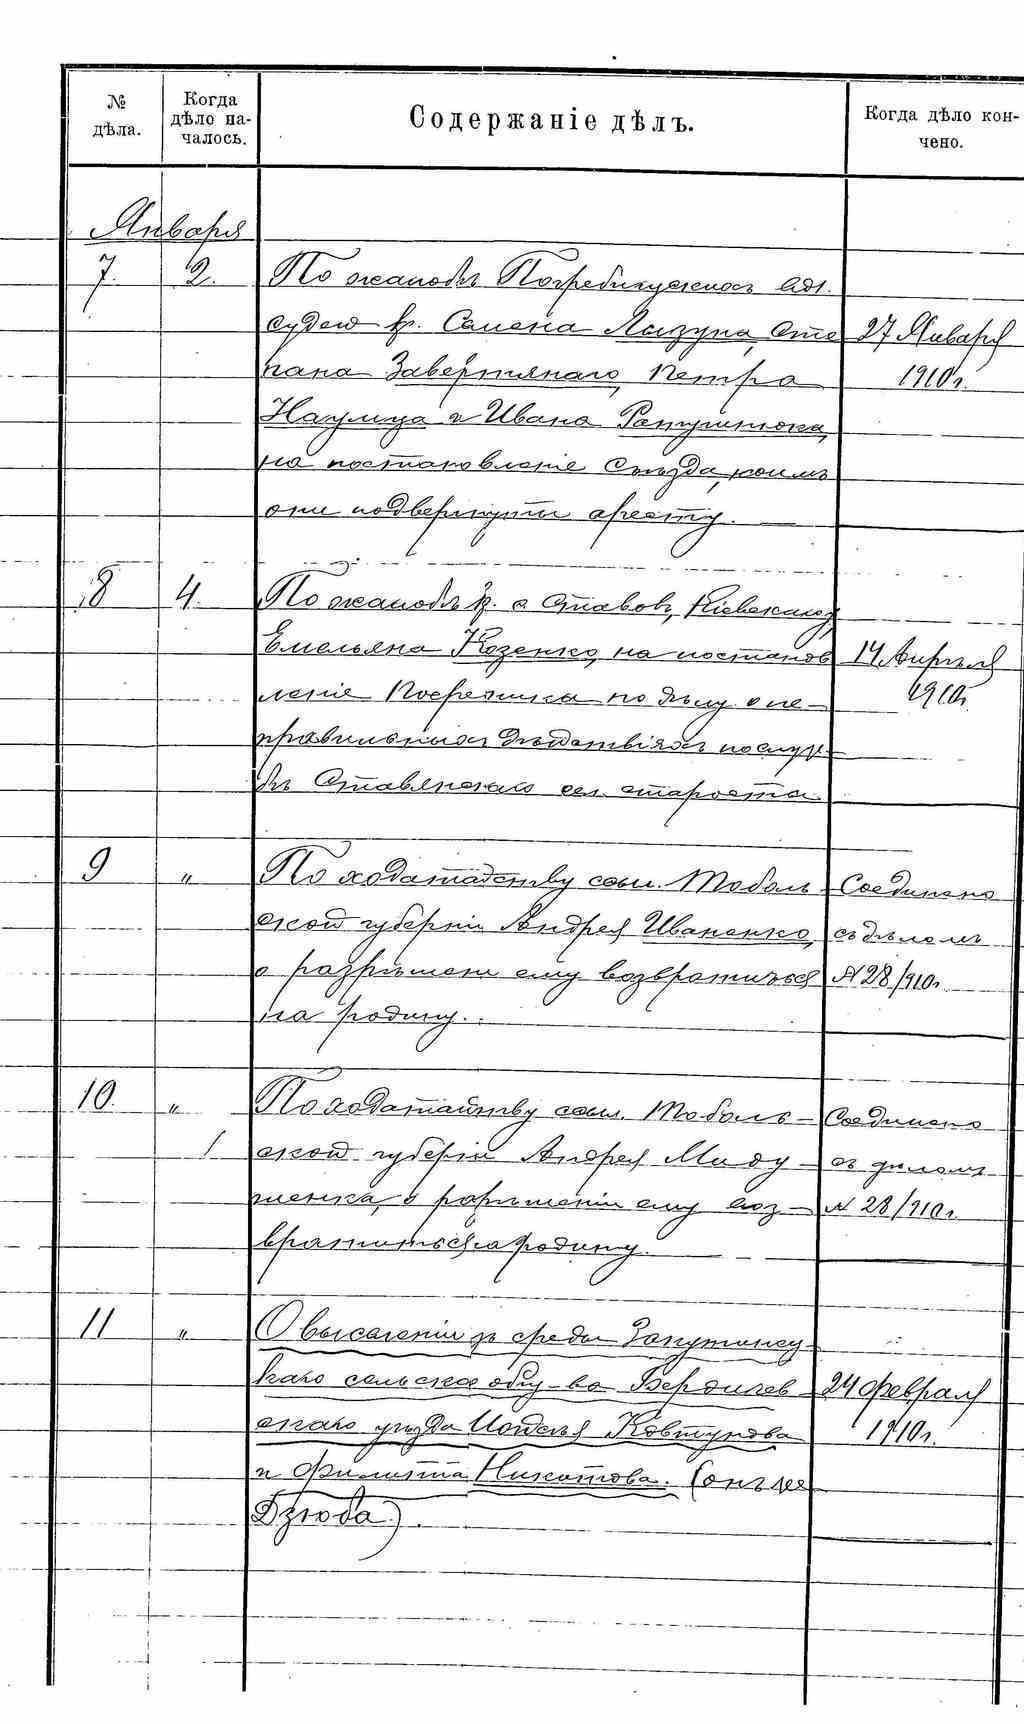 №
дѣла.
Когда
дѣло на-
чалось.
Содержаніе дѣлъ.
Когда дѣло кон-
чено.
Января
7. 2. По жалобѣ Погребищенскихъ
судей кр. Семена Лизуна, Сте
пана Завертяного, Петра
Наумца и Ивана
на постановленіе Съѣзда, коимъ
они подвергнуты аресту.
27 Января
1910 г.
8 4. По жалобѣ кр. с. Ставовъ, Кіевскаго у,
Емельяна Козенко, на постанов
леніе Посредника по дѣлу о не-
правильныхъ дѣйствіяхъ по служ-
бѣ Ставянскаго сел. старосты.
14 Апрѣля
1910 г.
9 " По ходатайству ссыл. Тоболь-
ской губерніи Андрея Иваненко,
о разрѣшеніи ему возвратиться
на родину.
Соединено
съ дѣломъ
№ 28/910 г.
10. " По ходатайству ссыл. Тоболь-
ской губерніи Андрея
о разрѣшеніи ему воз-
вратиться на родину.
Соединено
съ дѣломъ
№ 28/910 г.
11 " О выселеніи изъ среды
каго сельскаго общ-ва Бердичев-
скаго уѣзда Ковтунова
и Филиппа Никитова. (онъ же
Дзюба).
24 Февраля
1910 г.